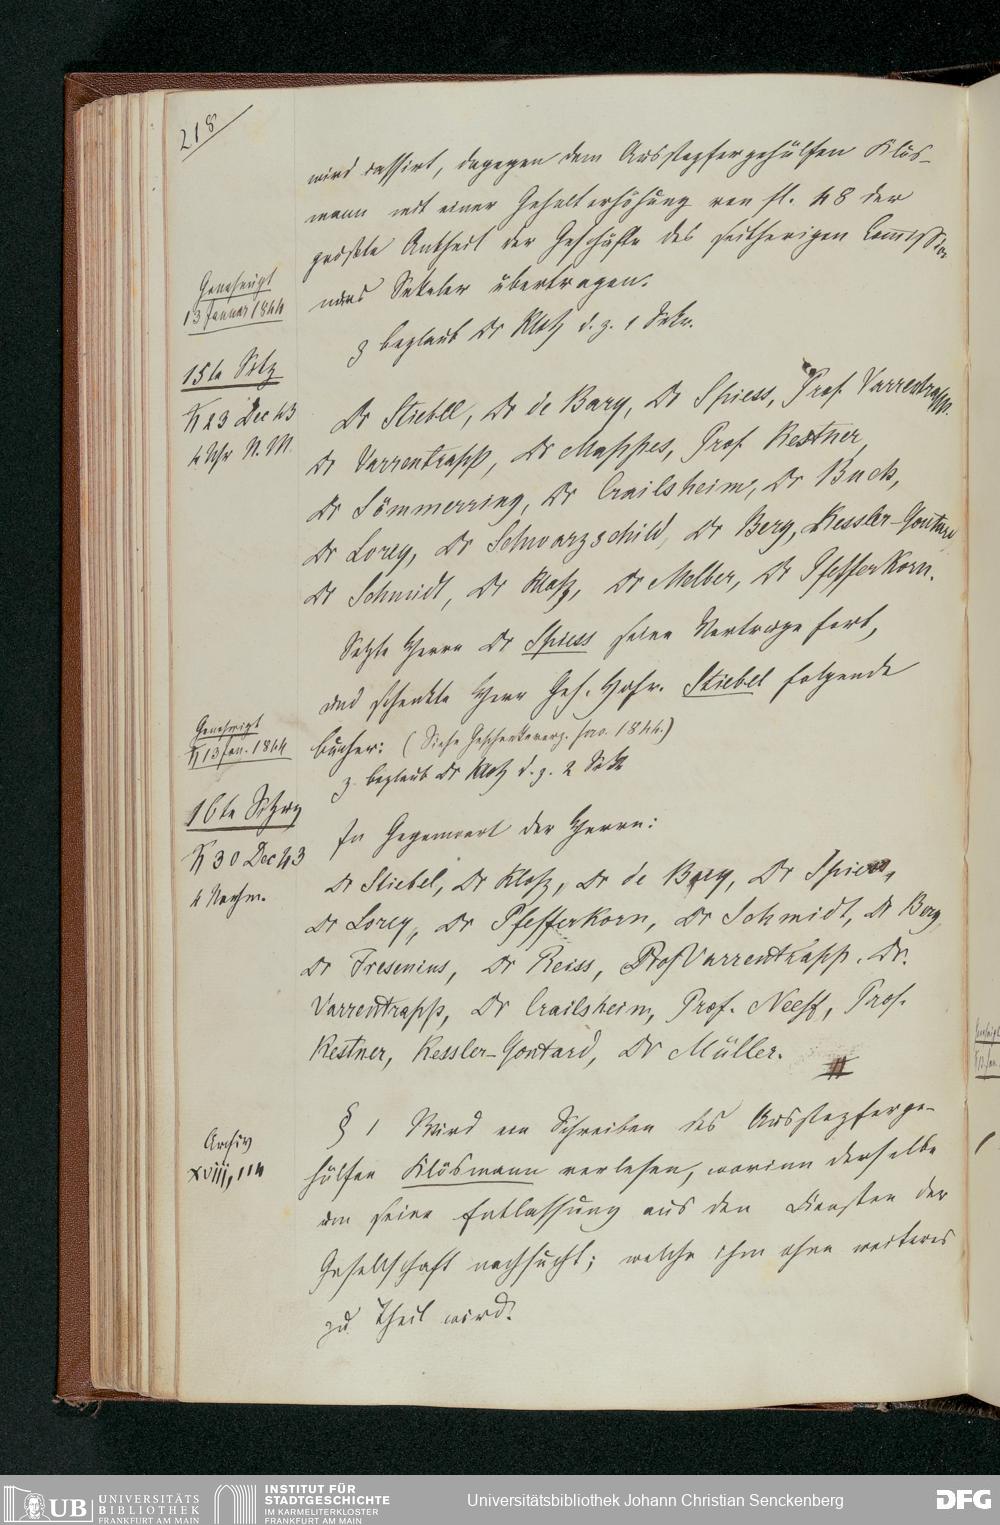 218
wird cassirt, dagegen dem Ausstopfergehülfen Klös-
mann mit einer Gehalterhöhung von fl. 48 der
größte Antheil der Geschäfte des seitherigen Commissio-
närs Sekeler übertragen.
z beglaub Dr Klotz d. z. 1 Sekr.
Genehmigt
13 Januar 1844
15te Sitz
Fr 23 Dec 43
4 Uhr N. M.
Dr Stiebel, Dr de Bary, Dr Spiess, Prof. Varrentrapp,
Dr Varrentrapp, Dr Mappes, Prof. Kestner,
Dr Sömmerring, Dr Crailsheim, Dr Buck,
Dr Lorey, Dr Schwarzschild, Dr Berg, Kessler-Gontard,
Dr Schmidt, Dr Klotz, Dr Melber, Dr Pfefferkorn.
Setzte Herrn Dr Spiess seine Vertraege fort,
und schenkte Herr Geh. Hofr. Stiebel folgende
bücher: (Siehe Geschenkeverz. pro. 1844.)
z. beglaub Dr Klotz d. z. 2 Sekr
Genehmigt
13 Jan. 1844
16te Sitzung
30 Dec 43
4 Nachm.
In Gegenwart der Herrn:
Dr Stiebel, Dr Klotz, Dr de Bary, Dr Spiess,
Dr Lorey, Dr Pfefferkorn, Dr Schmidt, Dr Berg,
Dr Fresenius, Dr Reiss, Prof Varrentrapp, Dr.
Varrentrapp, Dr Crailsheim, Prof. Neeff, Prof.
Kestner, Kessler-Gontard, Dr Müller.
Archiv
XVIII, 114
§ 1 Wird ein Schreiben des Ausstopferge-
hülfen Klösmann verlesen, worinn derselbe
um seine Entlassung aus den Diensten der
Gesellschaft nachsucht; welche ihm ohne weiteres
zu Theil wird.
UB UNIVERSITÄTS
BIBLIOTHEK
FRANKFURT AM MAIN
INSTITUT FÜR
STADTGESCHICHTE
IM KARMELITERKLOSTER
FRANKFURT AM MAIN
Universitätsbibliothek Johann Christian Senckenberg
DFG